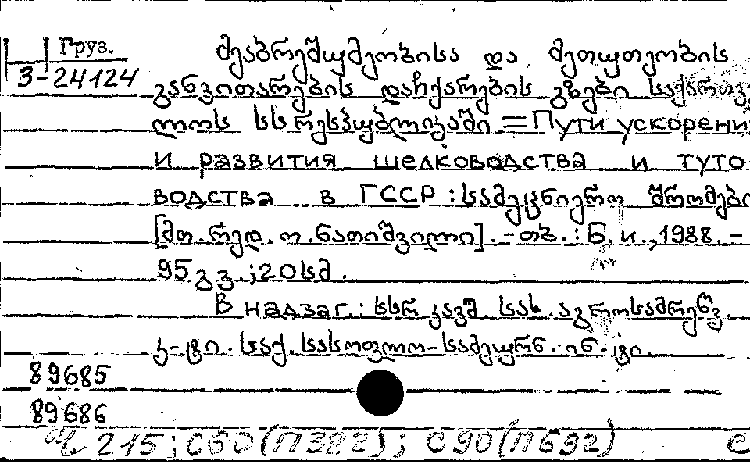 Груз.
3-24124
მეაბრეშუმეობისა და მეთუთეობის
განვითარების დაჩქარების გზები საქართვე
ლოს სს რესპუბლიკაში = Пути ускорени
и развития шелководства и туто-
водства в ГССР : სამეცნიერო შრომები
[მთ. რედ. ო. ნათიშვილი]. - თბ. : Б. и., 1988. -
95 გვ. ; 20 სმ.
В надзаг.: სსრ კავშ. სას. აგრო
კ-ტი. საქ. სასოფლო-სამეურნ. ინ-ტი.
89685
89686
215; С60(П322); С90(П692)